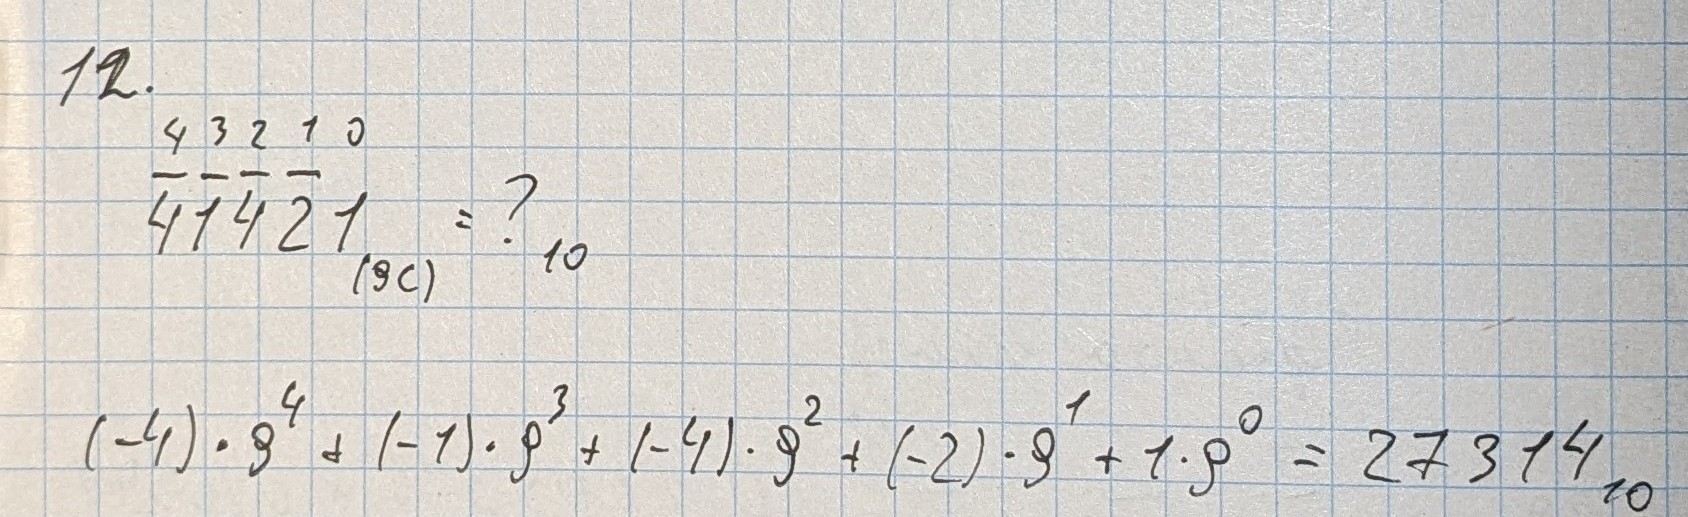 12.
4 3 2 1 0
4̅1̅4̅2̅1(9C) = ?10
(-4)·9⁴ + (-1)·9³ + (-4)·9² + (-2)·9¹ + 1·9⁰ = 27314₁₀